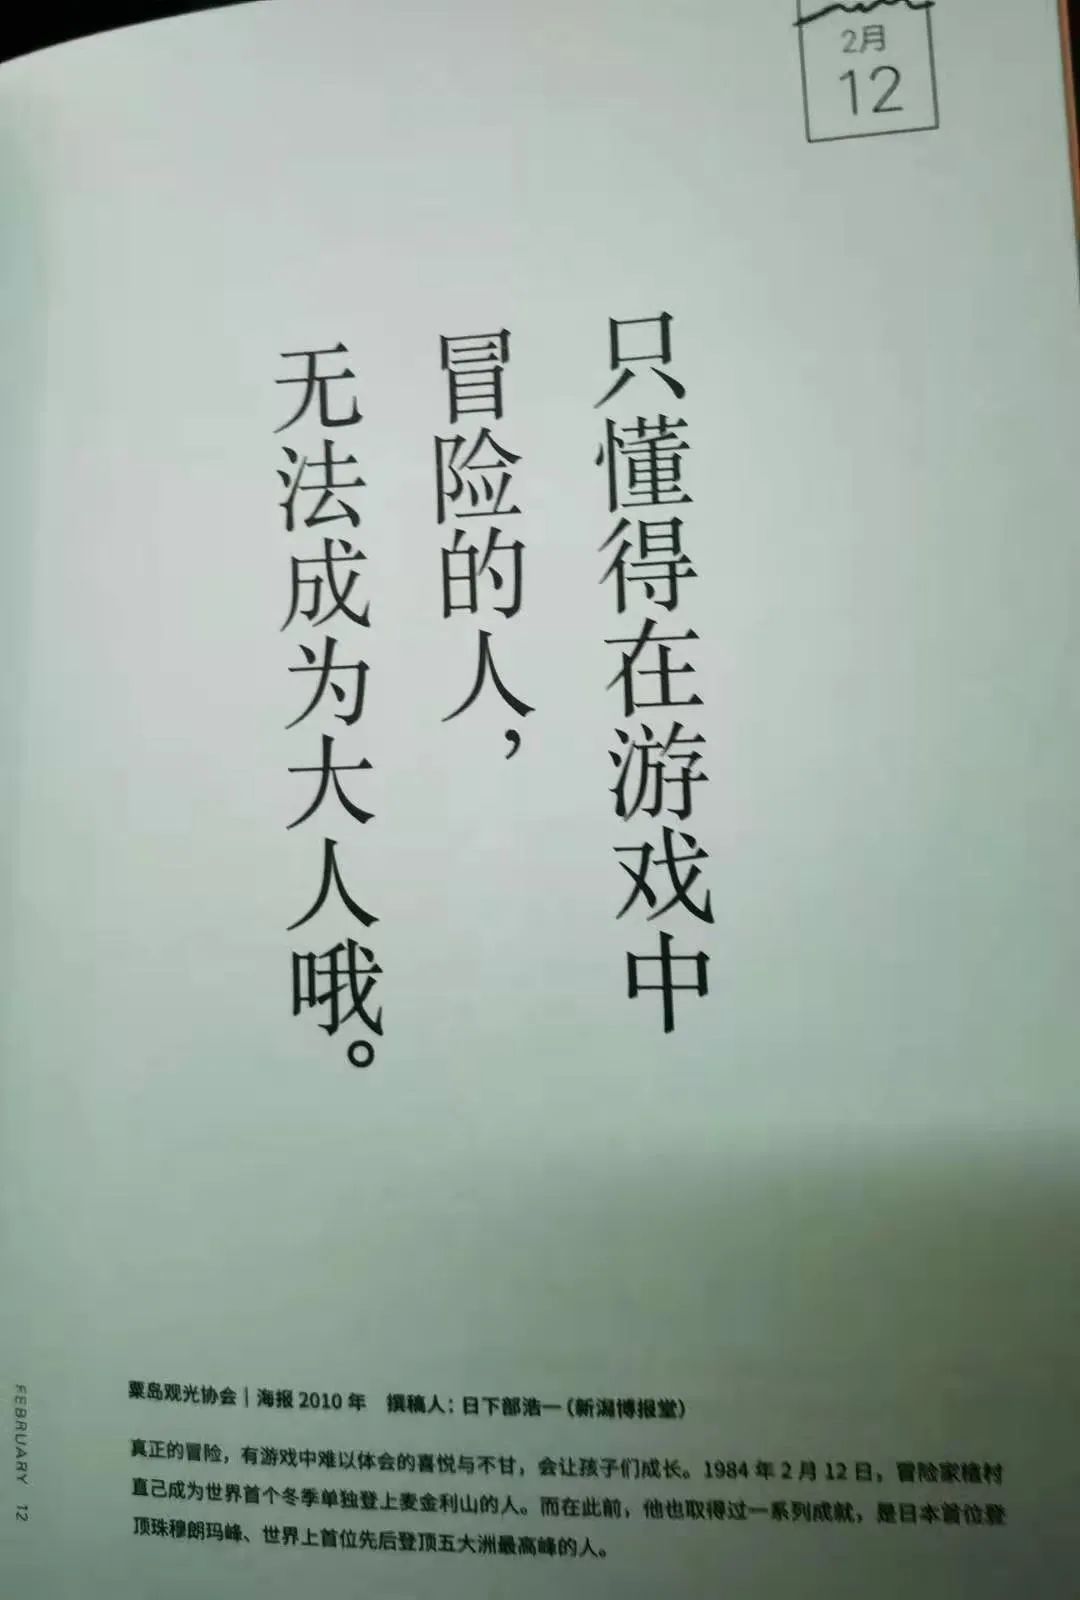 2月
12
只懂得在游戏中
冒险的人，
无法成为大人哦。
粟岛观光协会｜海报 2010 年　撰稿人：日下部浩一（新潟博报堂）
真正的冒险，有游戏中难以体会的喜悦与不甘，会让孩子们成长。1984 年 2 月 12 日，冒险家植村
直己成为世界首个冬季单独登上麦金利山的人。而在此前，他也取得过一系列成就，是日本首位登
顶珠穆朗玛峰、世界上首位先后登顶五大洲最高峰的人。
FEBRUARY 12